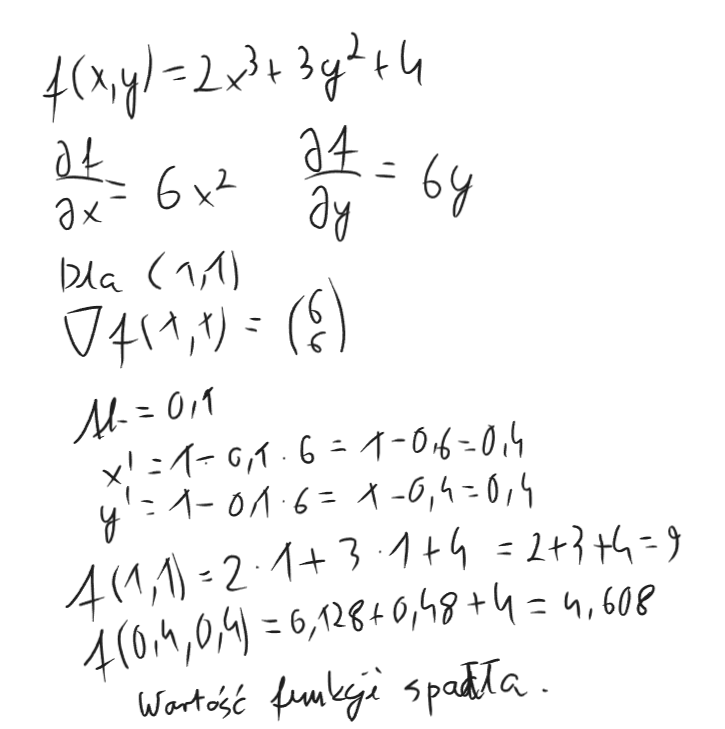 f(x,y)=2x³+3y²+4
∂f/∂x = 6x² ∂f/∂y = 6y
Dla (1,1)
∇f(1,1) = (6 6)
μ = 0,1
x' = 1 - 0,1 · 6 = 1 - 0,6 = 0,4
y' = 1 - 0,1 · 6 = 1 - 0,4 = 0,4
f(1,1) = 2 · 1 + 3 · 1 + 4 = 2+3+4 = 9
f(0,4,0,4) = 0,128 + 0,48 + 4 = 4,608
Wartość funkcji spadła.